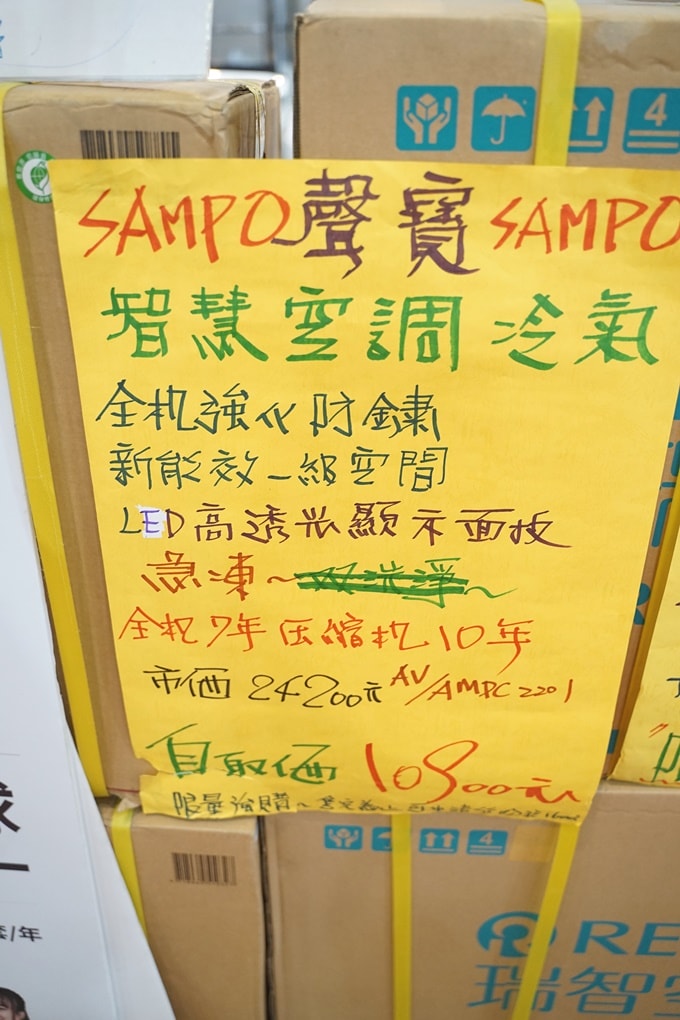 4
SAMPO聲寶SAMPO
智慧空調 冷氣
全机強化防鏽
新能效一級空間
LED高透光顯示面板
急凍~双洗淨~
全机7年 压縮机10年
市価 24200元 AV/AMPC2201
自取価 10800元
限量強購~
4
RE
瑞智空
/年